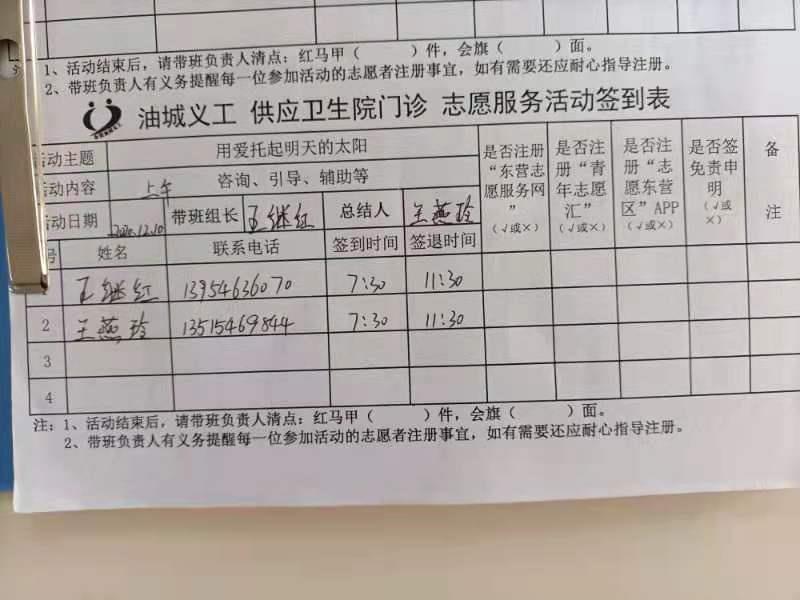 1、活动结束后，请带班负责人清点：红马甲（　　）件，会旗（　　）面。
2、带班负责人有义务提醒每一位参加活动的志愿者注册事宜，如有需要还应耐心指导注册。
油城义工 供应卫生院门诊 志愿服务活动签到表
活动主题 用爱托起明天的太阳 是否注册“东营志愿服务网”（√或×） 是否注册“青年志愿汇”（√或×） 是否注册“志愿东营区”APP（√或×） 是否签免责申明（√或×） 备注
活动内容 上午 咨询、引导、辅助等
活动日期 2020.12.10 带班组长 王继红 总结人 王燕玲
号 姓名 联系电话 签到时间 签退时间
王继红 13954636070 7:30 11:30
2 王燕玲 13515469844 7:30 11:30
3
4
注：1、活动结束后，请带班负责人清点：红马甲（　　）件，会旗（　　）面。
2、带班负责人有义务提醒每一位参加活动的志愿者注册事宜，如有需要还应耐心指导注册。